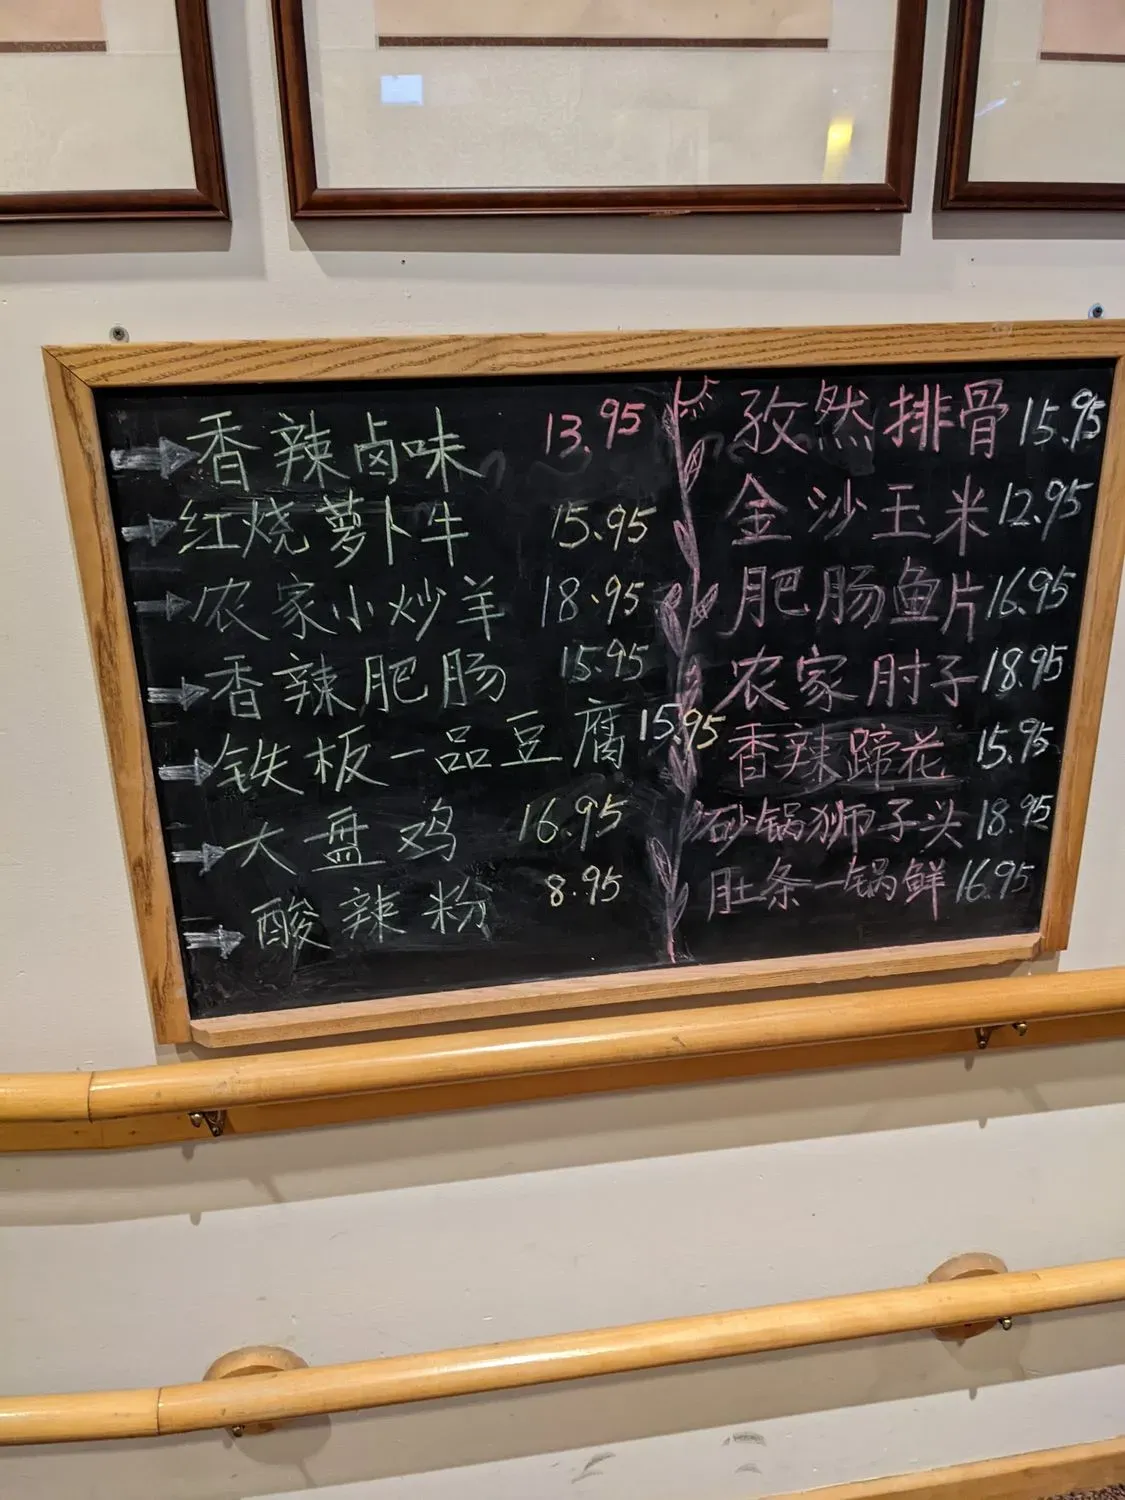 香辣卤味 13.95
红烧萝卜牛 15.95
农家小炒羊 18.95
香辣肥肠 15.95
铁板一品豆腐 15.95
大盘鸡 16.95
酸辣粉 8.95
孜然排骨 15.95
金沙玉米 12.95
肥肠鱼片 16.95
农家肘子 18.95
香辣蹄花 15.95
砂锅狮子头 18.95
肚条一锅鲜 16.95